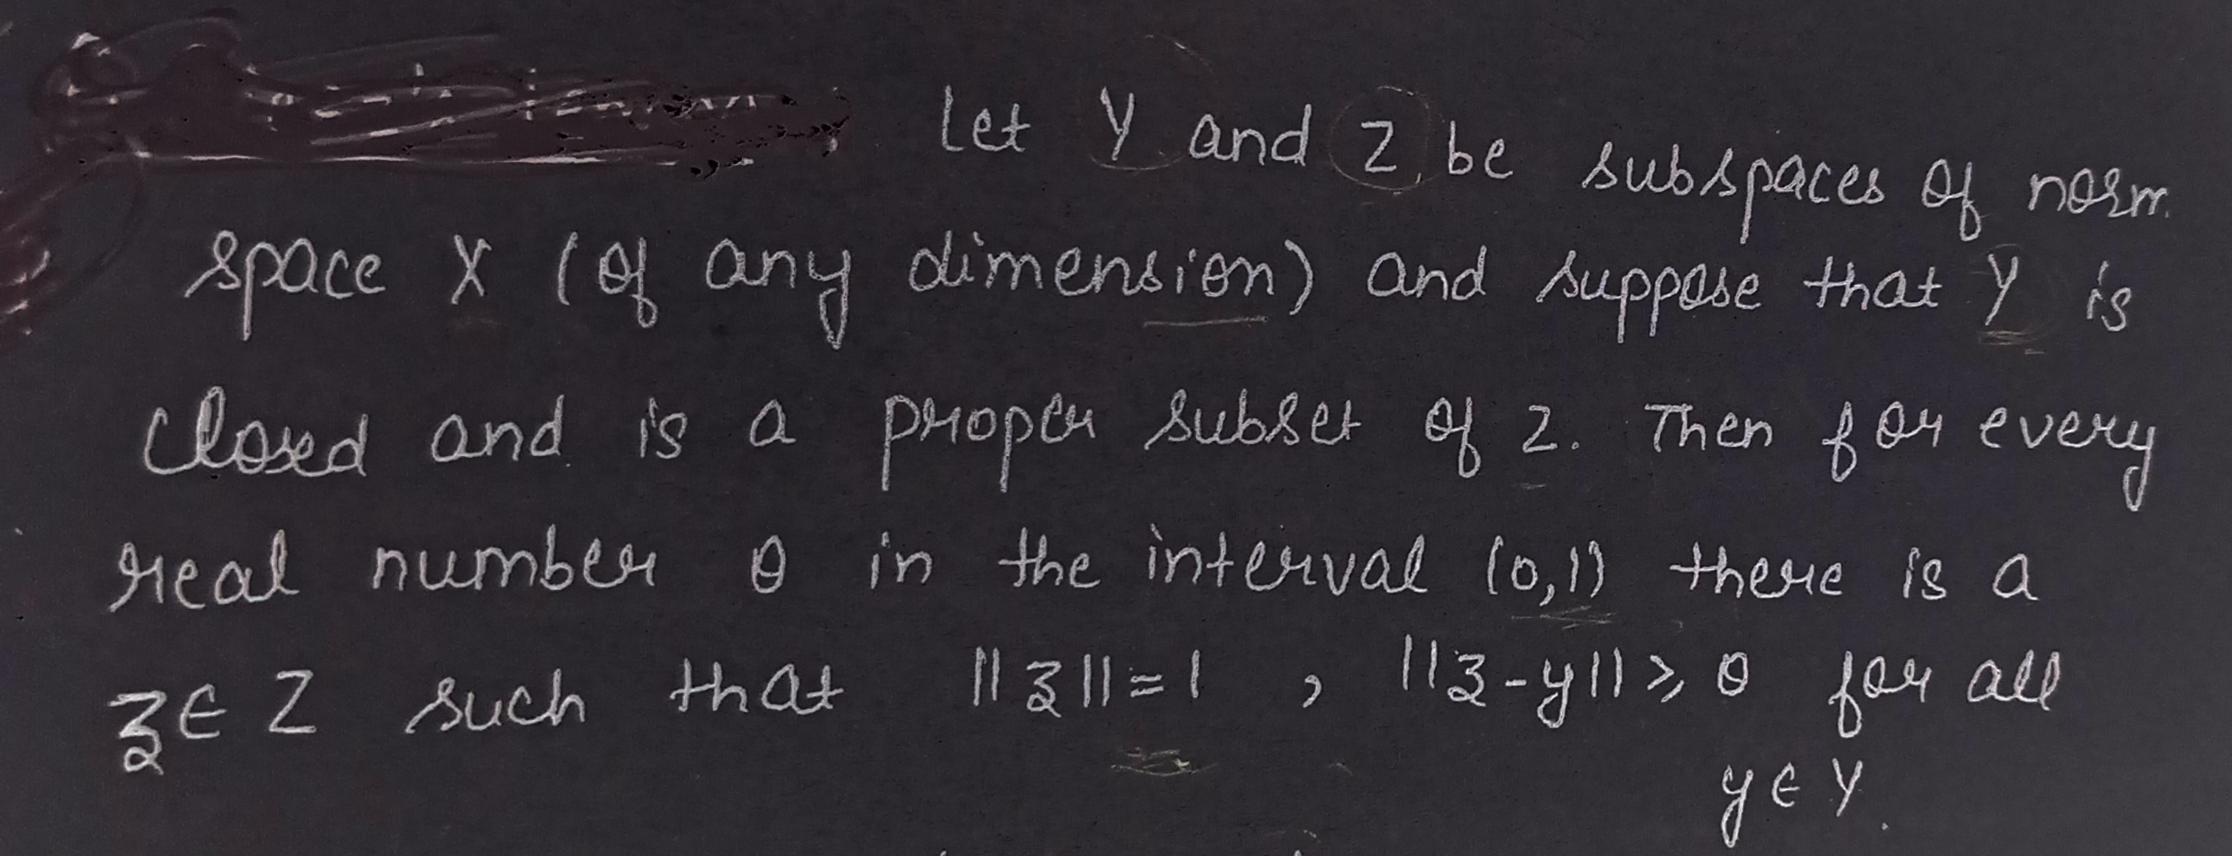 Let Y and Z be subspaces of norm
space X (of any dimension) and suppose that Y is
closed and is a proper subset of Z. Then for every
real number θ in the interval (0,1) there is a
z ∈ Z such that ||z|| = 1 , ||z-y|| ≥ θ for all
y ∈ Y.